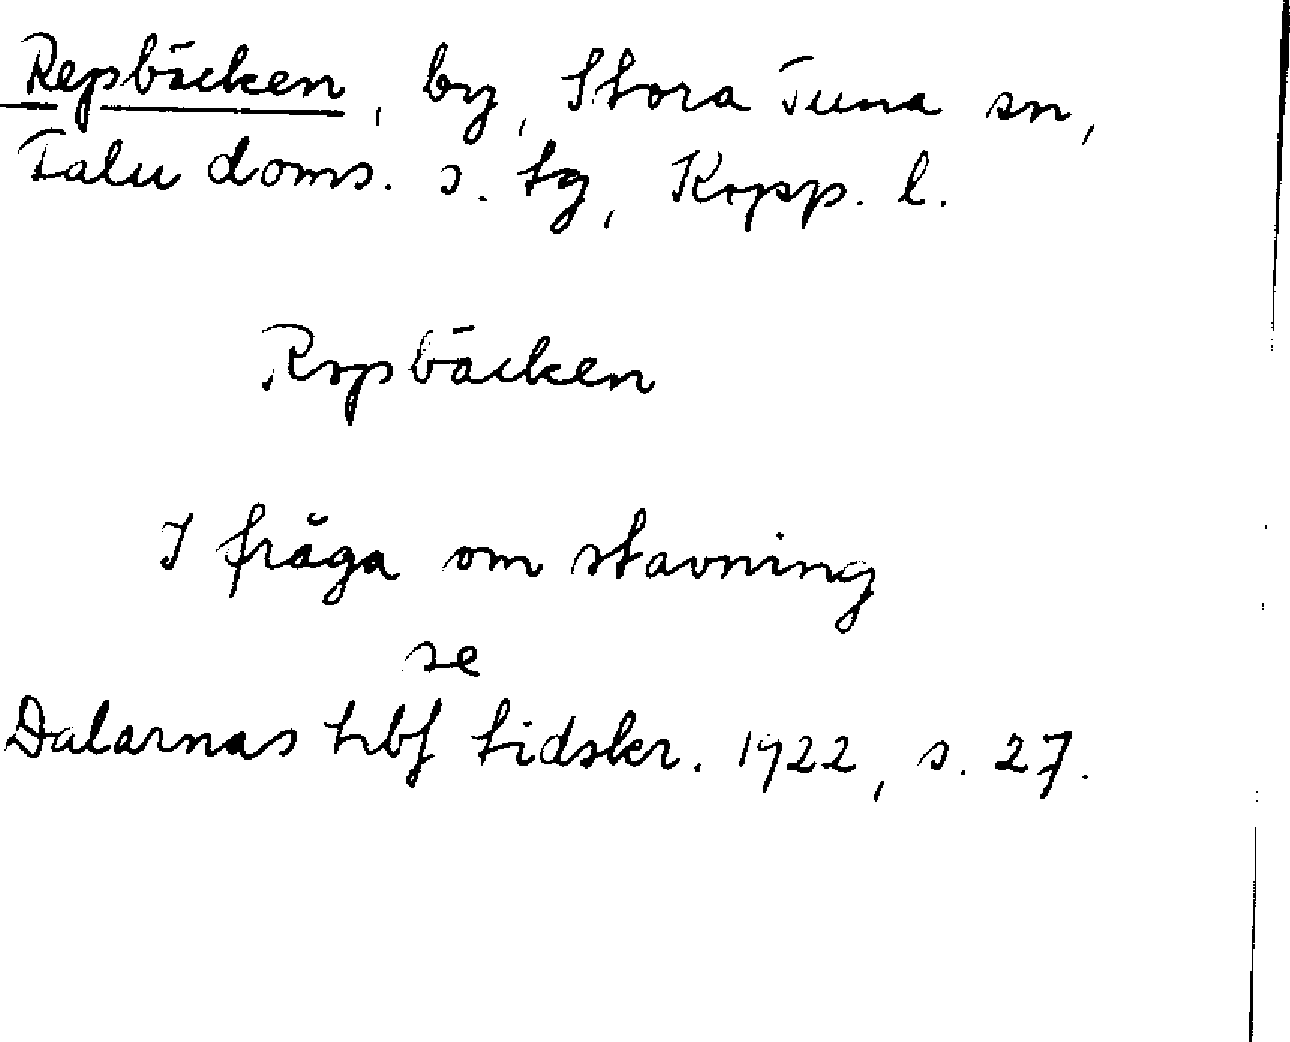 Repbäcken, by, Stora Tuna sn,
Falu doms. s. tg, Kopp. l.
Ropbäcken
I fråga om stavning
se
Dalarnas hbf tidskr. 1922, s. 27.